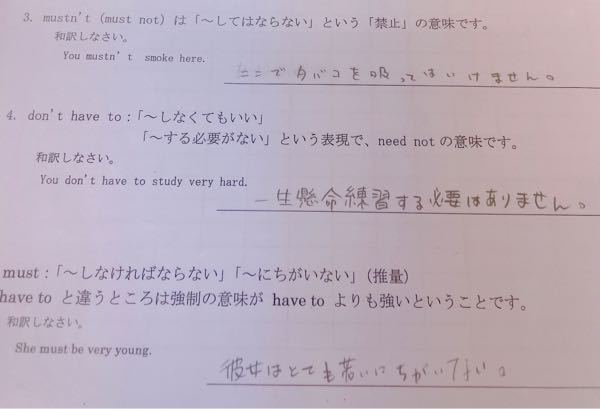 3. mustn't (must not) は「～してはならない」という「禁止」の意味です。
和訳しなさい。
You mustn't smoke here.
ここでタバコを吸ってはいけません。
4. don't have to：「～しなくてもいい」
「～する必要がない」という表現で、need not の意味です。
和訳しなさい。
You don't have to study very hard.
一生懸命練習する必要はありません。
must：「～しなければならない」「～にちがいない」（推量）
have to と違うところは強制の意味が have to よりも強いということです。
和訳しなさい。
She must be very young.
彼女はとても若いにちがいない。